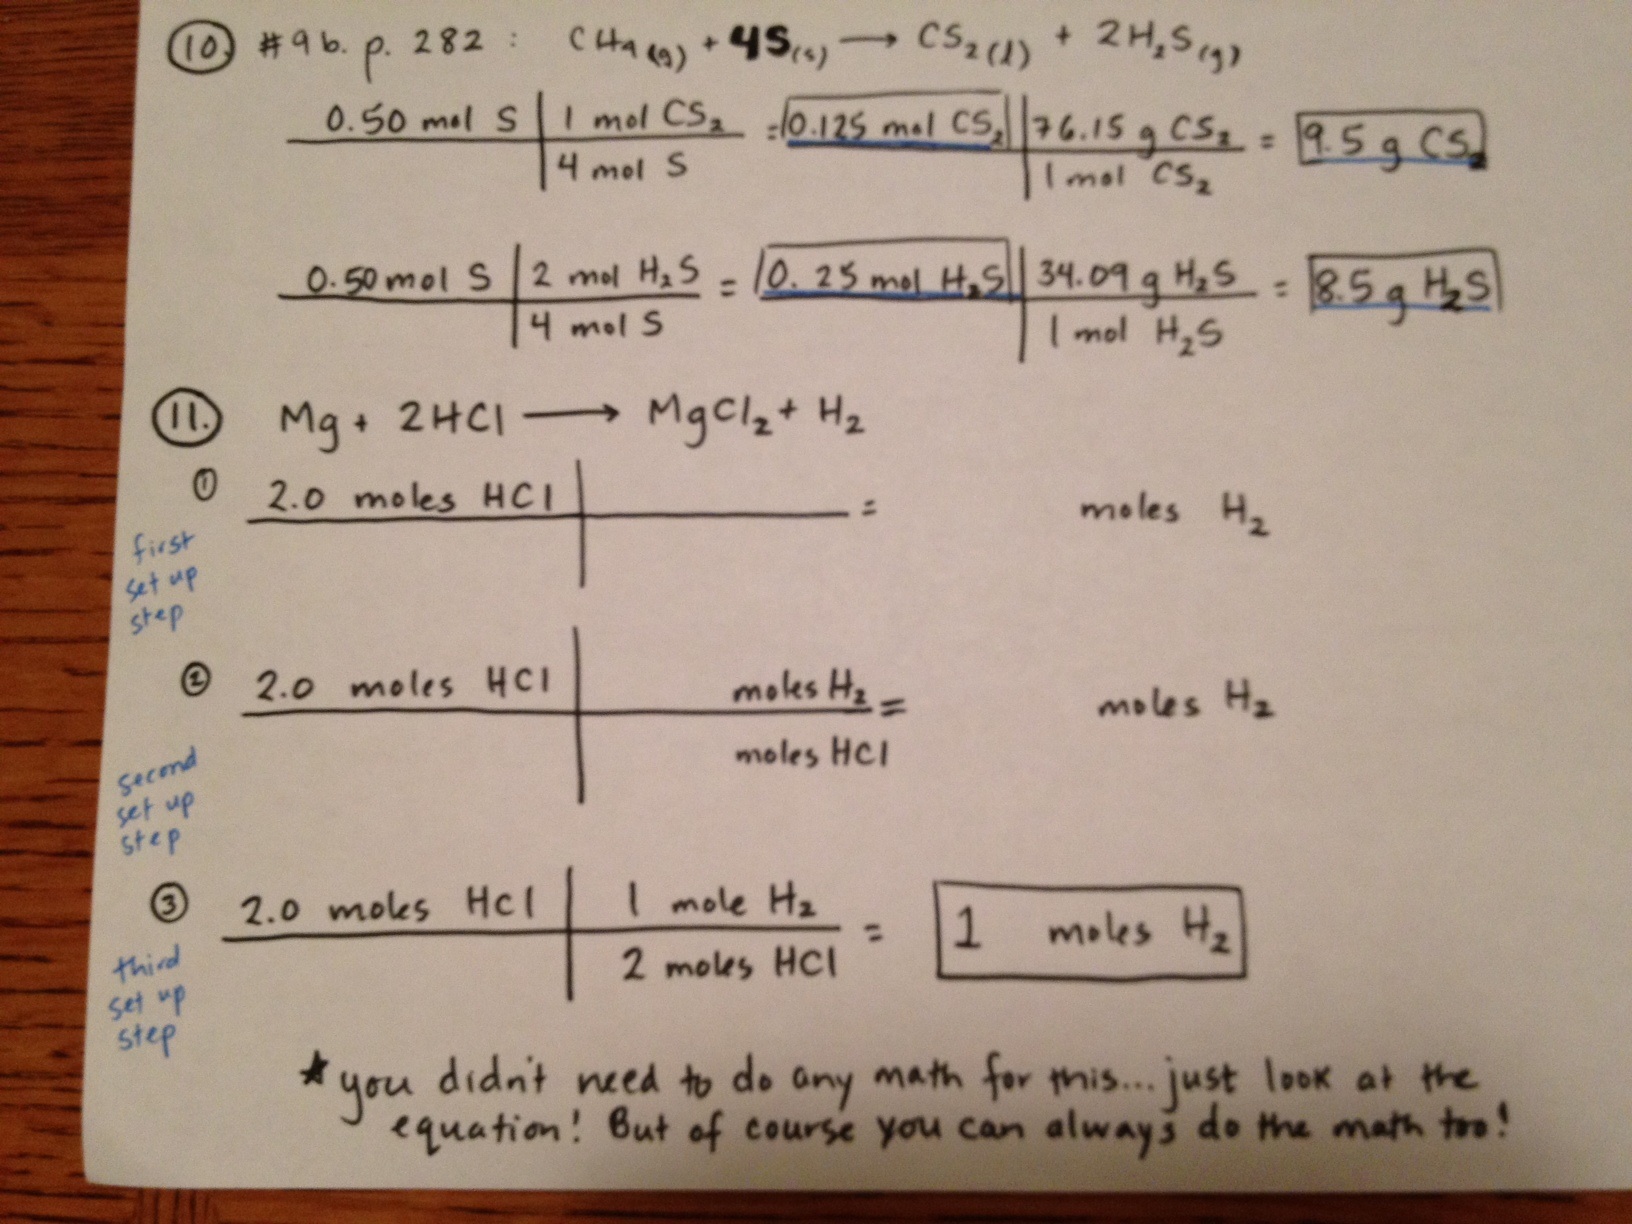 10. #9b. p. 282 : CH4(g) + 4S(s) → CS2(l) + 2H2S(g)
0.50 mol S | 1 mol CS2 = 0.125 mol CS2 | 76.15 g CS2 = 9.5 g CS2
4 mol S | 1 mol CS2
0.50 mol S | 2 mol H2S = 0.25 mol H2S | 34.09 g H2S = 8.5 g H2S
4 mol S | 1 mol H2S
11. Mg + 2HCl → MgCl2 + H2
① 2.0 moles HCl | = moles H2
first
set up
step
② 2.0 moles HCl | moles H2 = moles H2
moles HCl
second
set up
step
③ 2.0 moles HCl | 1 mole H2 = 1 moles H2
2 moles HCl
third
set up
step
★ you didn't need to do any math for this... just look at the
equation! But of course you can always do the math too!